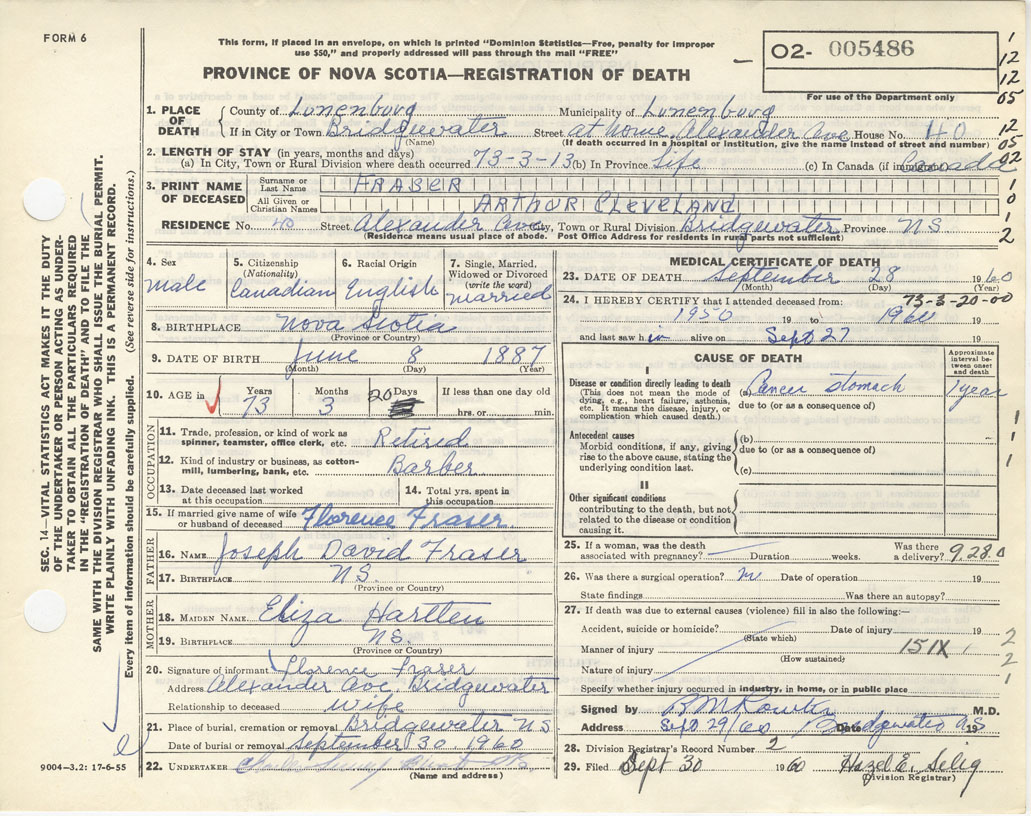 FORM 6
This form, if placed in an envelope, on which is printed "Dominion Statistics—Free, penalty for improper
use $50," and properly addressed will pass through the mail "FREE"
PROVINCE OF NOVA SCOTIA—REGISTRATION OF DEATH
O2- 005486
For use of the Department only
1
12
12
05
12
05
02
1
0
1
2
1. PLACE OF DEATH
County of Lunenburg Municipality of Lunenburg
If in City or Town Bridgewater Street at home, Alexander Ave House No. 40
(Name) (If death occurred in a hospital or institution, give the name instead of street and number)
2. LENGTH OF STAY (in years, months and days)
(a) In City, Town or Rural Division where death occurred 73-3-13 (b) In Province Life (c) In Canada (if immigrant) Canada
3. PRINT NAME OF DECEASED
Surname or Last Name FRASER
All Given or Christian Names ARTHUR CLEVELAND
RESIDENCE No. 40 Street Alexander Ave City, Town or Rural Division Bridgewater Province N.S.
(Residence means usual place of abode. Post Office Address for residents in rural parts not sufficient)
4. Sex male
5. Citizenship (Nationality) Canadian
6. Racial Origin English
7. Single, Married, Widowed or Divorced (write the word) married
8. BIRTHPLACE Nova Scotia
(Province or Country)
9. DATE OF BIRTH June 8 1887
(Month) (Day) (Year)
10. AGE in Years 73 Months 3 Days 20 If less than one day old hrs. or min.
OCCUPATION
11. Trade, profession, or kind of work as spinner, teamster, office clerk, etc. Retired
12. Kind of industry or business, as cotton-mill, lumbering, bank, etc. Barber
13. Date deceased last worked at this occupation
14. Total yrs. spent in this occupation
15. If married give name of wife or husband of deceased Florence Fraser
FATHER
16. NAME Joseph David Fraser
17. BIRTHPLACE N.S.
(Province or Country)
MOTHER
18. MAIDEN NAME Eliza Hartlen
19. BIRTHPLACE N.S.
(Province or Country)
20. Signature of informant Florence Fraser
Address Alexander Ave. Bridgewater
Relationship to deceased Wife
21. Place of burial, cremation or removal Bridgewater N.S.
Date of burial or removal September 30, 1960
22. UNDERTAKER
(Name and address)
9004-3.2: 17-6-55
MEDICAL CERTIFICATE OF DEATH
23. DATE OF DEATH September 28 1960
(Month) (Day) (Year)
24. I HEREBY CERTIFY that I attended deceased from: 73-3-20-00
1950 19 to 1960 19
and last saw him alive on Sept 27 19
CAUSE OF DEATH
Approximate interval between onset and death
I
Disease or condition directly leading to death
(This does not mean the mode of dying, e.g., heart failure, asthenia, etc. It means the disease, injury, or complication which caused death.)
(a) Cancer Stomach 1 year
due to (or as a consequence of)
Antecedent causes
Morbid conditions, if any, giving rise to the above cause, stating the underlying condition last.
(b)
due to (or as a consequence of)
(c)
1
1
1
II
Other significant conditions
contributing to the death, but not related to the disease or condition causing it.
25. If a woman, was the death associated with pregnancy? Duration weeks. Was there a delivery? 9.28.0
26. Was there a surgical operation? no Date of operation 19
State findings Was there an autopsy?
27. If death was due to external causes (violence) fill in also the following:—
Accident, suicide or homicide? Date of injury 19
(State which)
Manner of injury 151X
(How sustained)
Nature of injury
Specify whether injury occurred in industry, in home, or in public place
2
2
1
Signed by M.D.
Address Sept 29/60 Bridgewater NS Date 19
28. Division Registrar's Record Number 2
29. Filed Sept 30 1960 Hazel E. Selig
(Division Registrar)
SEC. 14—VITAL STATISTICS ACT MAKES IT THE DUTY
OF THE UNDERTAKER OR PERSON ACTING AS UNDER-
TAKER TO OBTAIN ALL THE PARTICULARS REQUIRED
IN THE "REGISTRATION OF DEATH" AND TO FILE THE
SAME WITH THE DIVISION REGISTRAR WHO SHALL ISSUE THE BURIAL PERMIT.
WRITE PLAINLY WITH UNFADING INK. THIS IS A PERMANENT RECORD.
Every item of information should be carefully supplied. (See reverse side for instructions.)